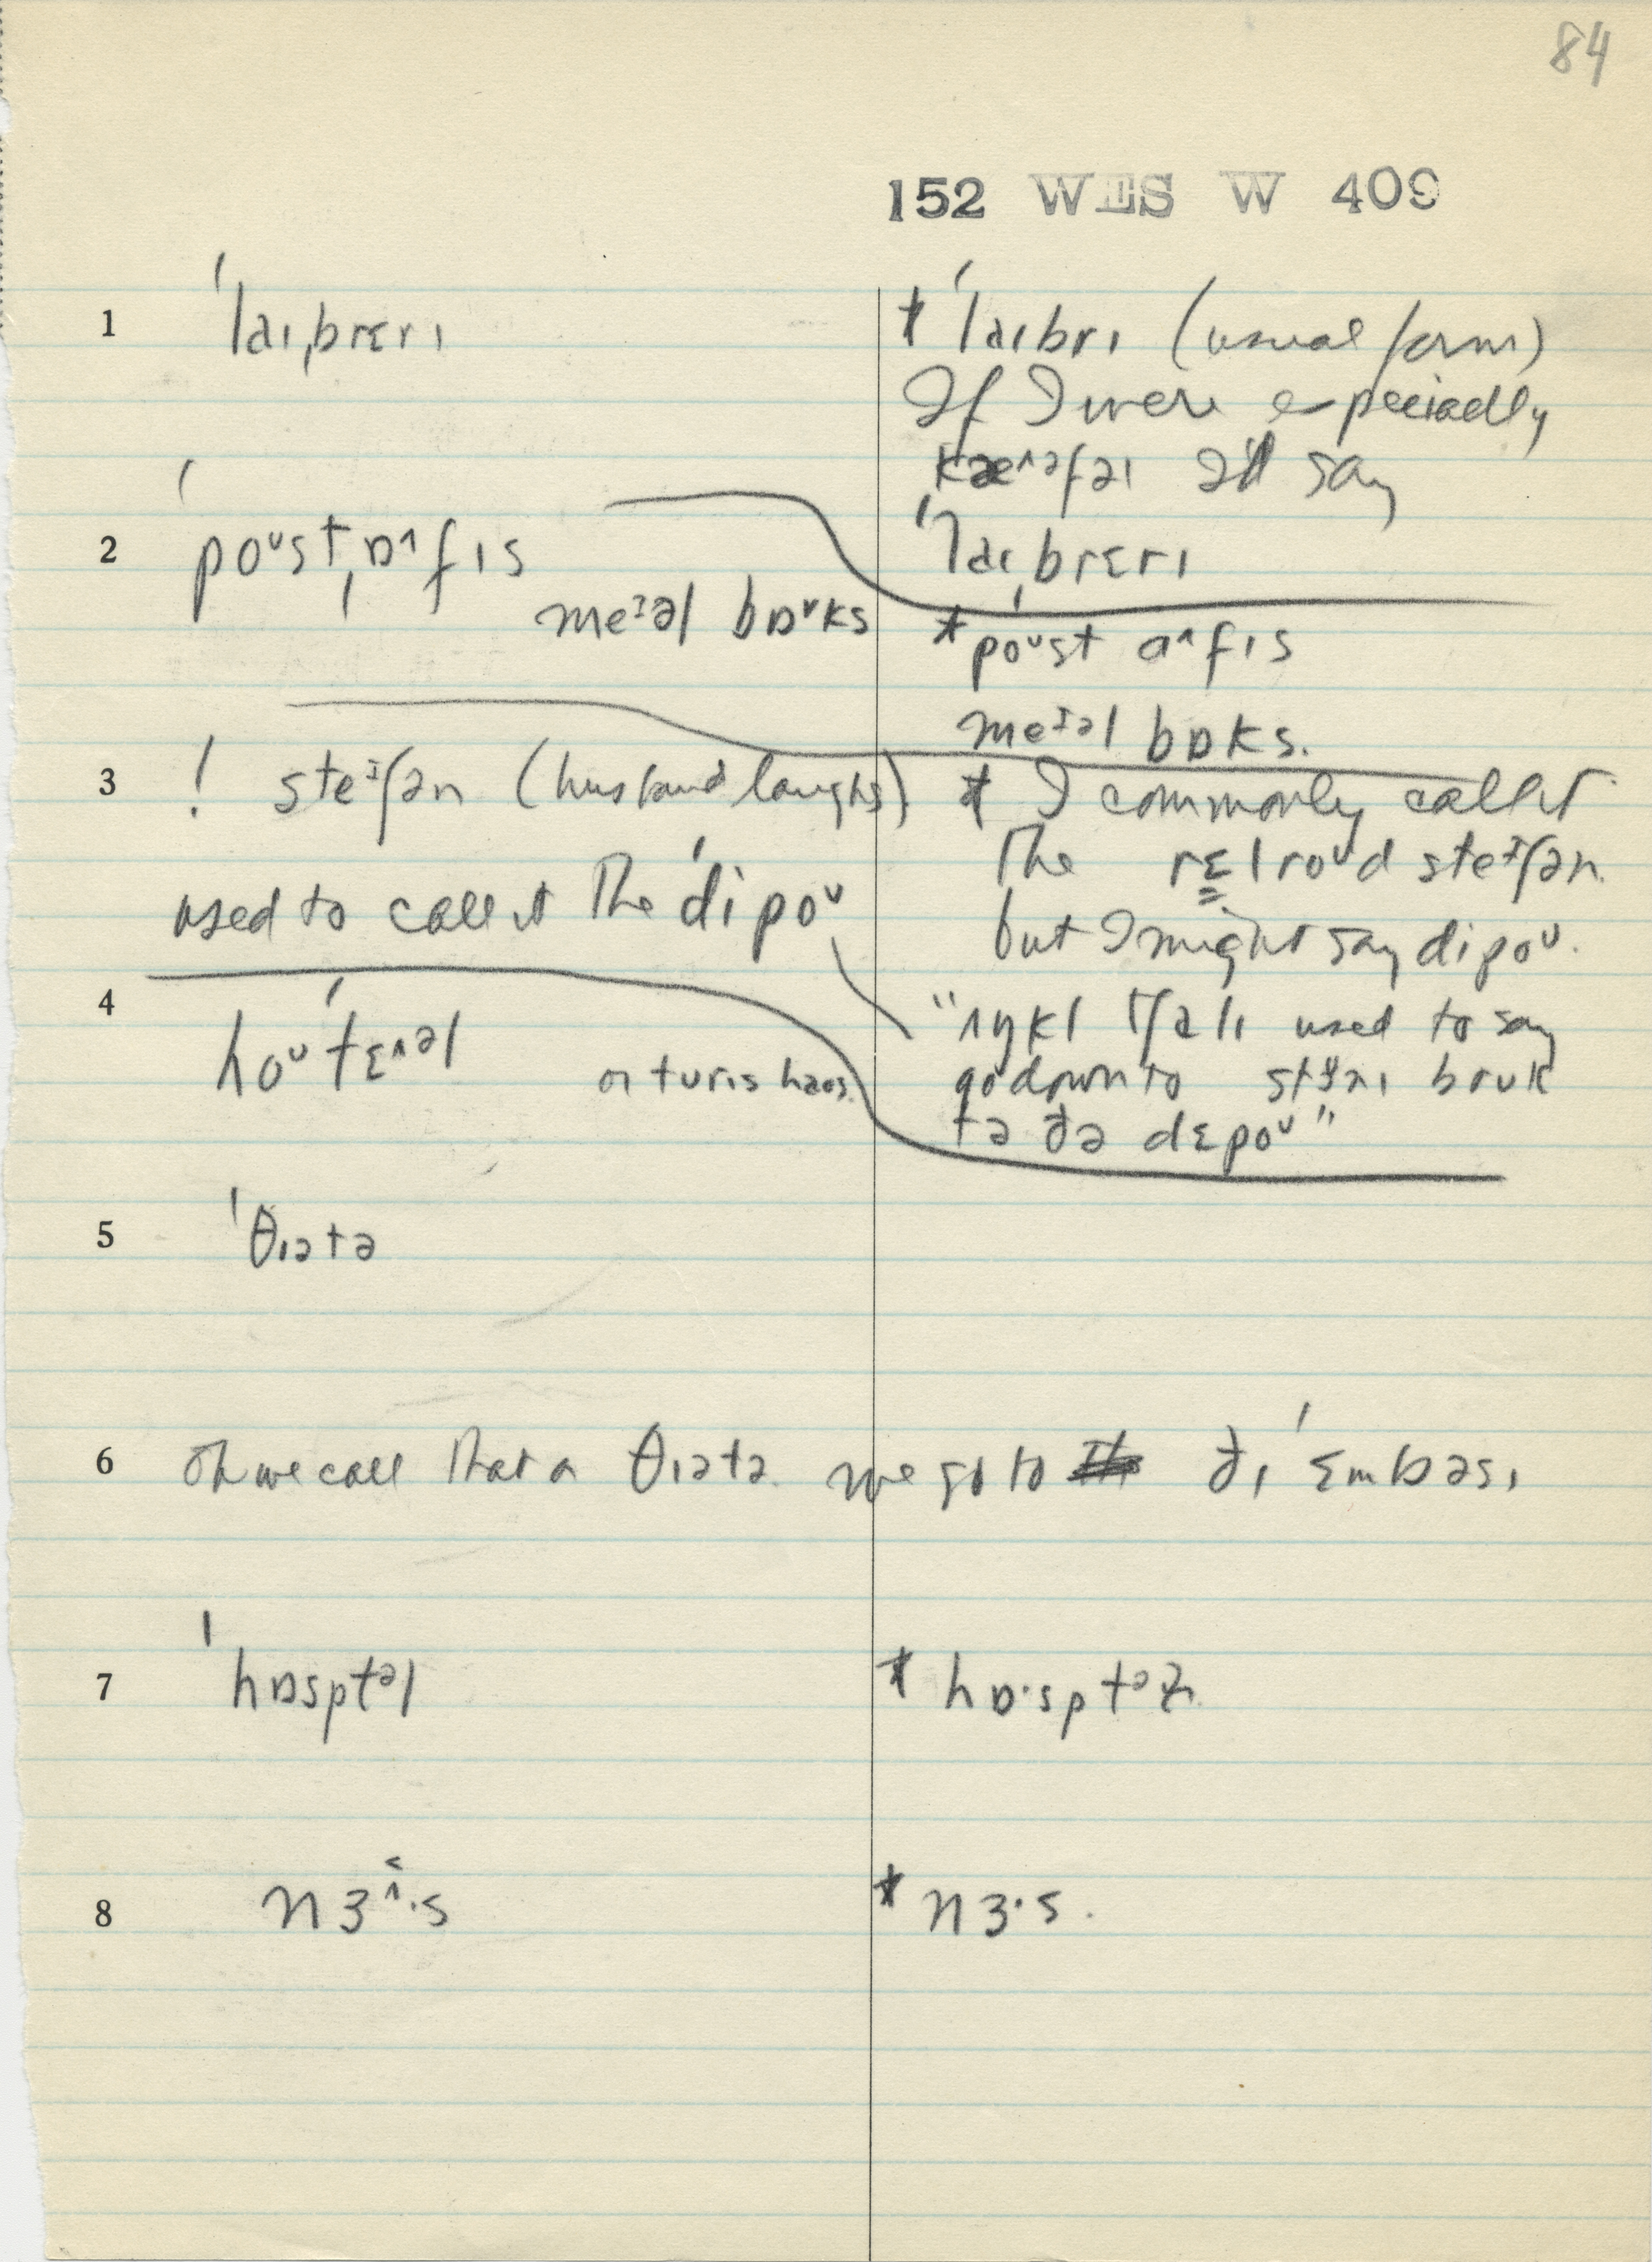 84
152 WES W 409
1 ˈlaɪˌbrɛrɪ
* ˈlaɪbrɪ (usual form)
If I were especially
I'd say
ˈlaɪˌbrɛrɪ
2 ˈpoᶷstˌɒ^fɪs
meᶦəl bɒᵛks
* poᶷst ɑ^fɪs
meᶦəl bɒks.
3 ! steᶦʃən (husband laughs)
used to call it the ˈdipoᶷ
* I commonly call it
the rɛlroᶷd steᶦʃən.
but I might say dipoᶷ.
"ʌŋkl tʃɑlɪ used to say
go down to bruk
tə ðə dɛpoᶷ"
4 hoᶷˈtɛ^əl or turɪs haʊs.
5 ˈθɪətə
6 Oh we call that a θɪətə. we go to ðɪ ˈɛmbəsɪ
7 ˈhɒsptəl
* hɒ·sptəɫ.
8 nɜ^·s
* nɜ·s.